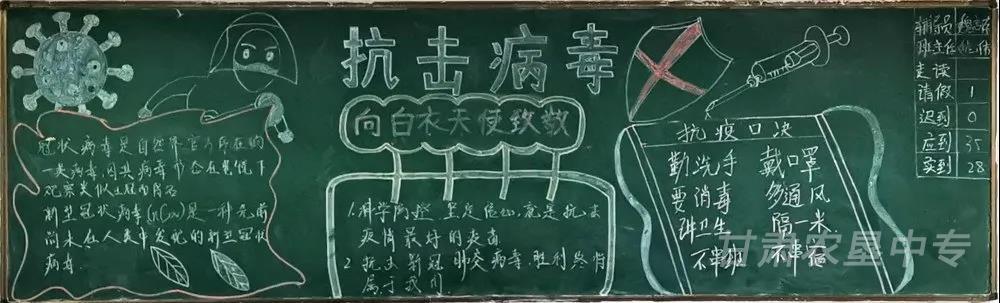 抗击病毒
向白衣天使致敬
冠状病毒是自然界广泛存在的
一类病毒,因其病毒
新型冠状病毒(nCov)是一种先前
尚未在人类中发现的新型冠状
病毒.
1.科学防控,坚定信心,就是抗击
疫情最好的疫苗
2.抗击新冠肺炎病毒,胜利终将
属于我们.
抗疫口决
勤洗手 戴口罩
要消毒 多通风
讲卫生 隔一米
不串班 不串宿
辅导员
班主任
走读
请假 1
迟到 0
应到 35
实到 28
甘肃农垦中专